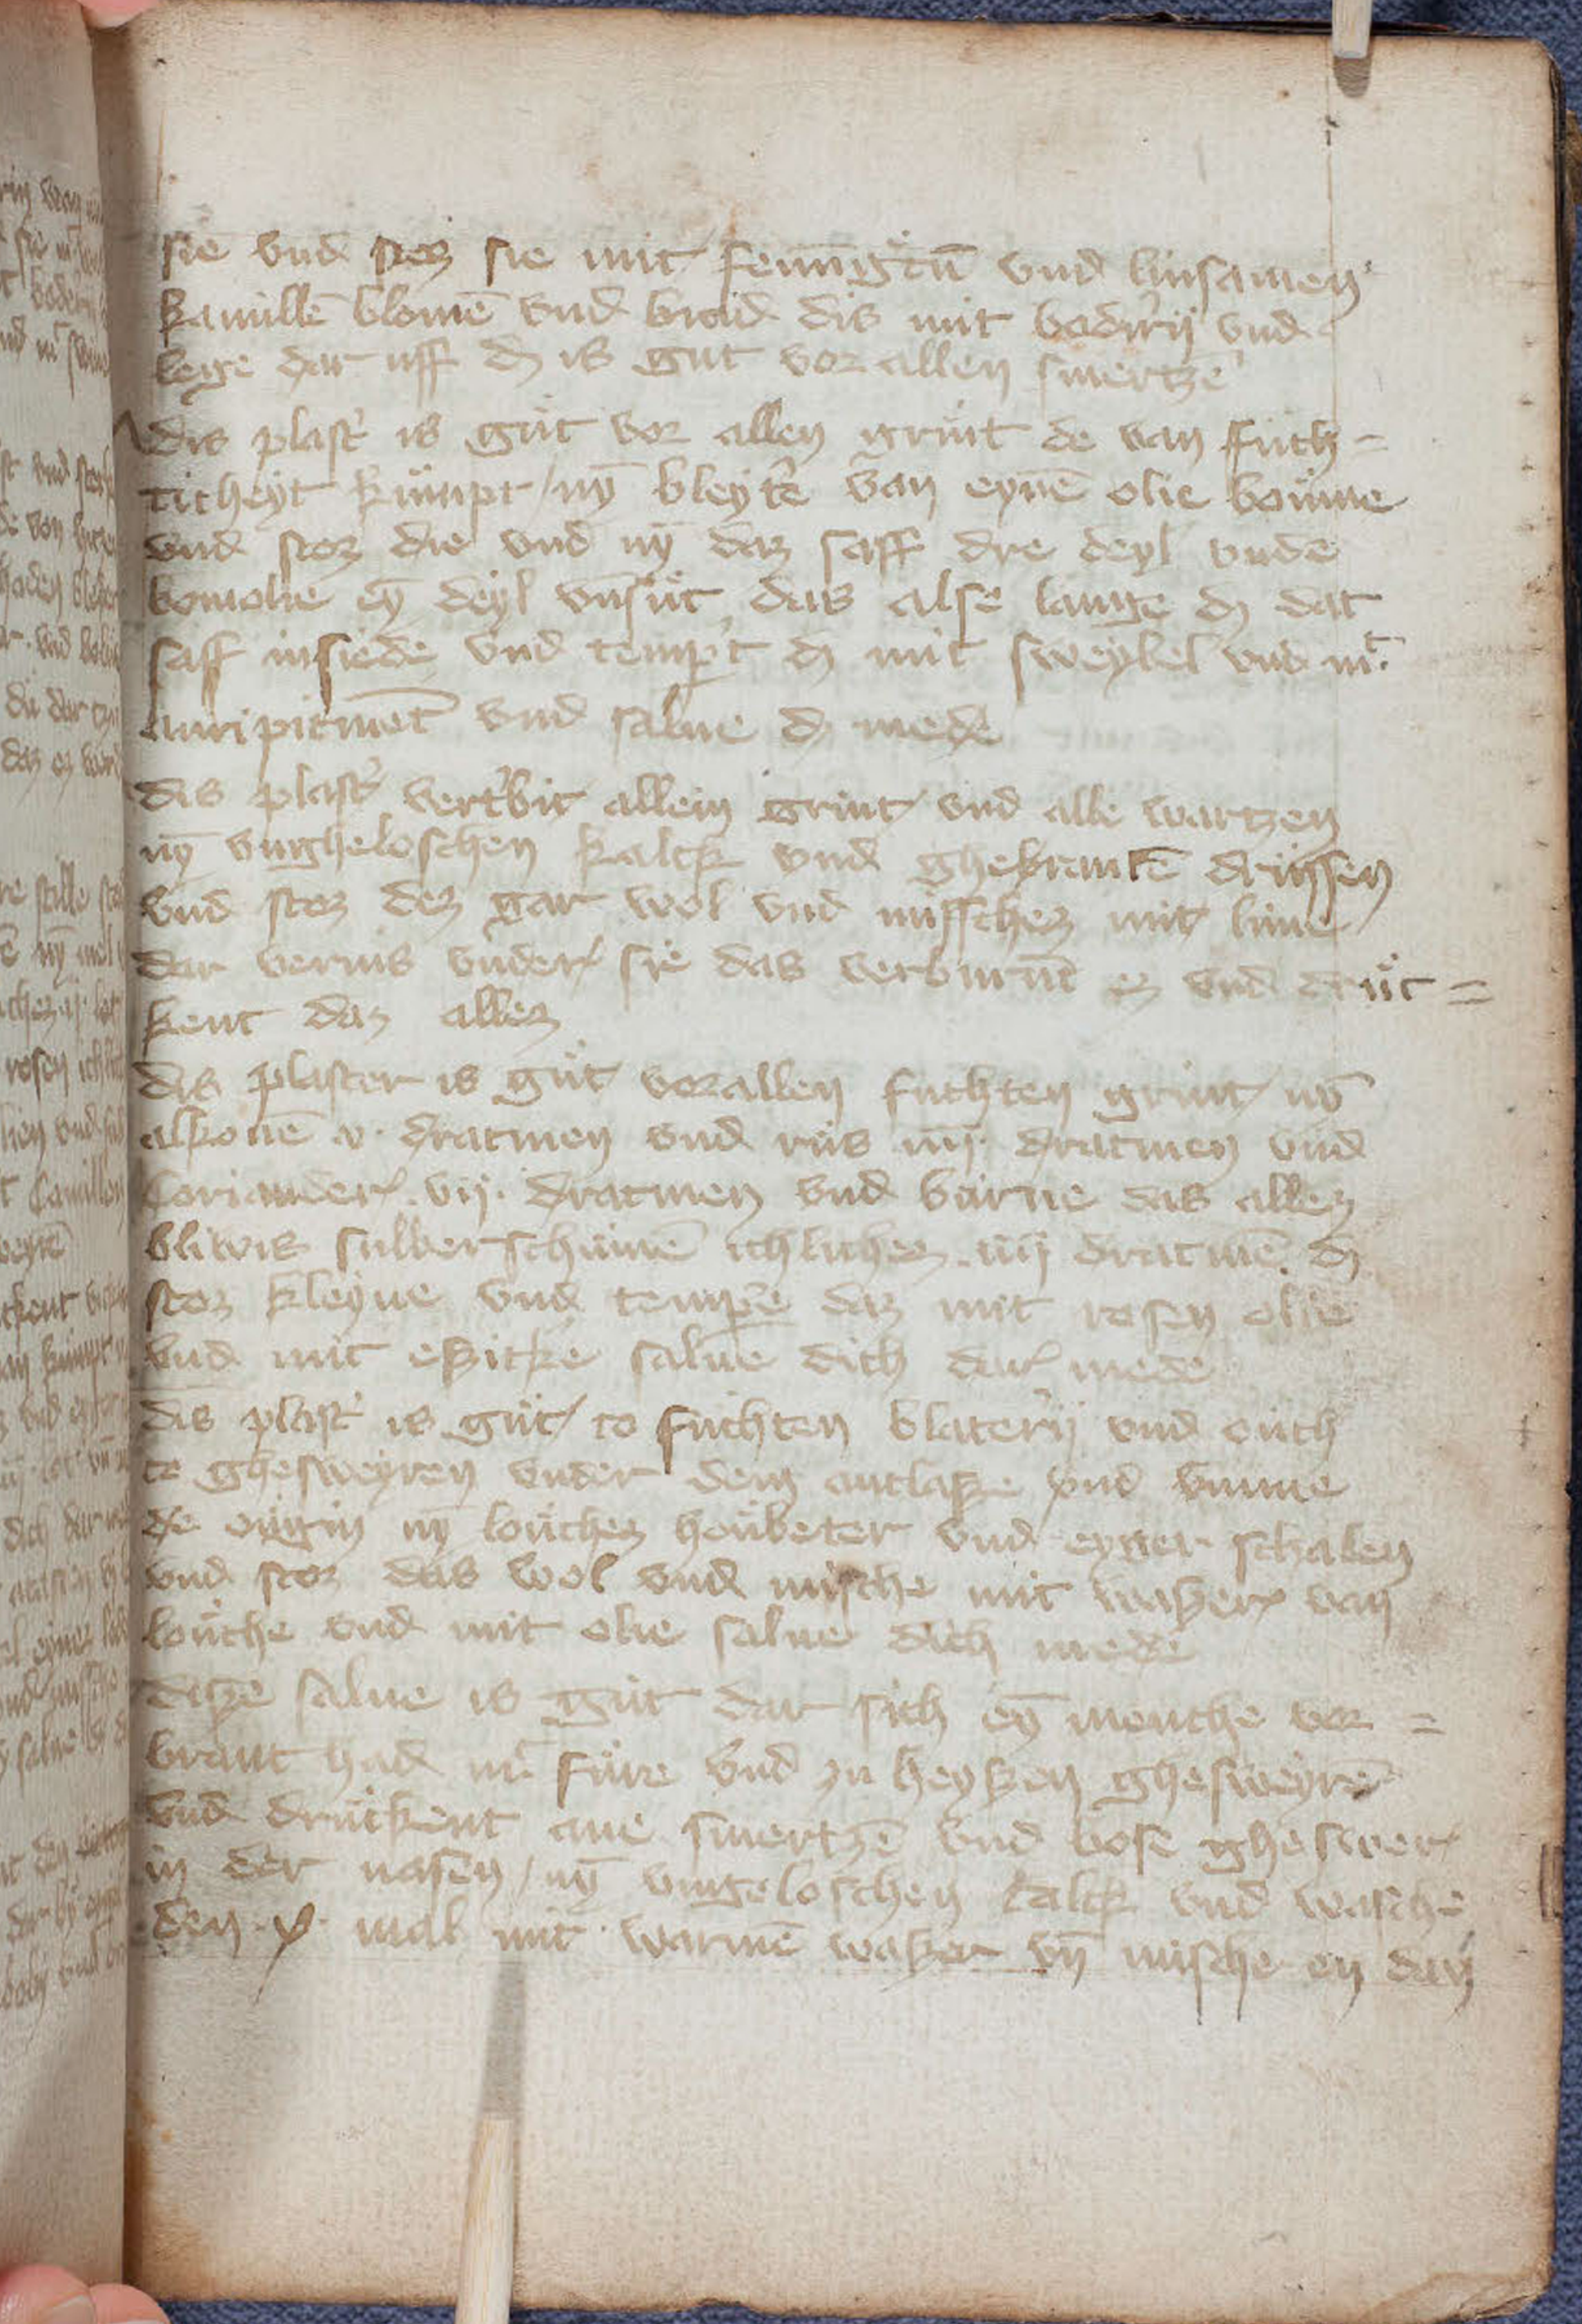 sie vnd stoz sie mit fenūgͤcū vnd linsamen
kamillē blomē vnd bind dis mit bodirij vnd
lege dar uff dz is gut vor allen smertzē
dis plastˀ is gůt vor allen grint de van fucht=
ticheyt kůmpt / nȳ bleytˀe van eynē olie boůme
vnd stoz die vnd nȳ daz saff dre deyl vndē
bomolie eȳ deyl vn̄ sůt das alse lange dz dat
saff insiede vnd tempˀt dz mit sweybel vnd mͭ
auripicmētͭ vnd salue dz mede
dis plastˀ vertˀbit allein grint vnd alle wartzen
nȳ vngheloschen kalck vnd ghebrantē drussen
vnd stoz dez gar wol vnd misschez mit lime
dar vernis vnder sie das verbirnt ez vnd drůc=
kent daz allez
dis plaster is gůt vor allen fuchten grint / nȳ
alkonē v. dracmen vnd růs iiij. dracmen vnd
Coriander. vij. dracmen vnd bůrne das allez
bliwis silberschůmē ichlichez. iiij dracmē. dz
stoz kleyne vnd tempˀe daz mit rosen olie
vnd mit eßicke salue dich dar mede
dis plastˀ is gůt / to fuchten blaterij vnd ouch
to ghesweyren vnder dem antlaße vnd vmme
de ougin nȳ louchez houbeter vnd eyger schalen
vnd stoz das wol vnd mische mit waßer van
louche vnd mit olie salue dich mede
diße salue is gůt dar sich eȳ mensche vor=
brant had mͭ fůre vnd zu heyßen ghesweyrē
vnd drůckent ane smertzē vnd bose ghesweer
in der nasen / nȳ vngeloschen kalck vnd wasche
den .x. mal mit warmē waßer vn̄ mische en dan